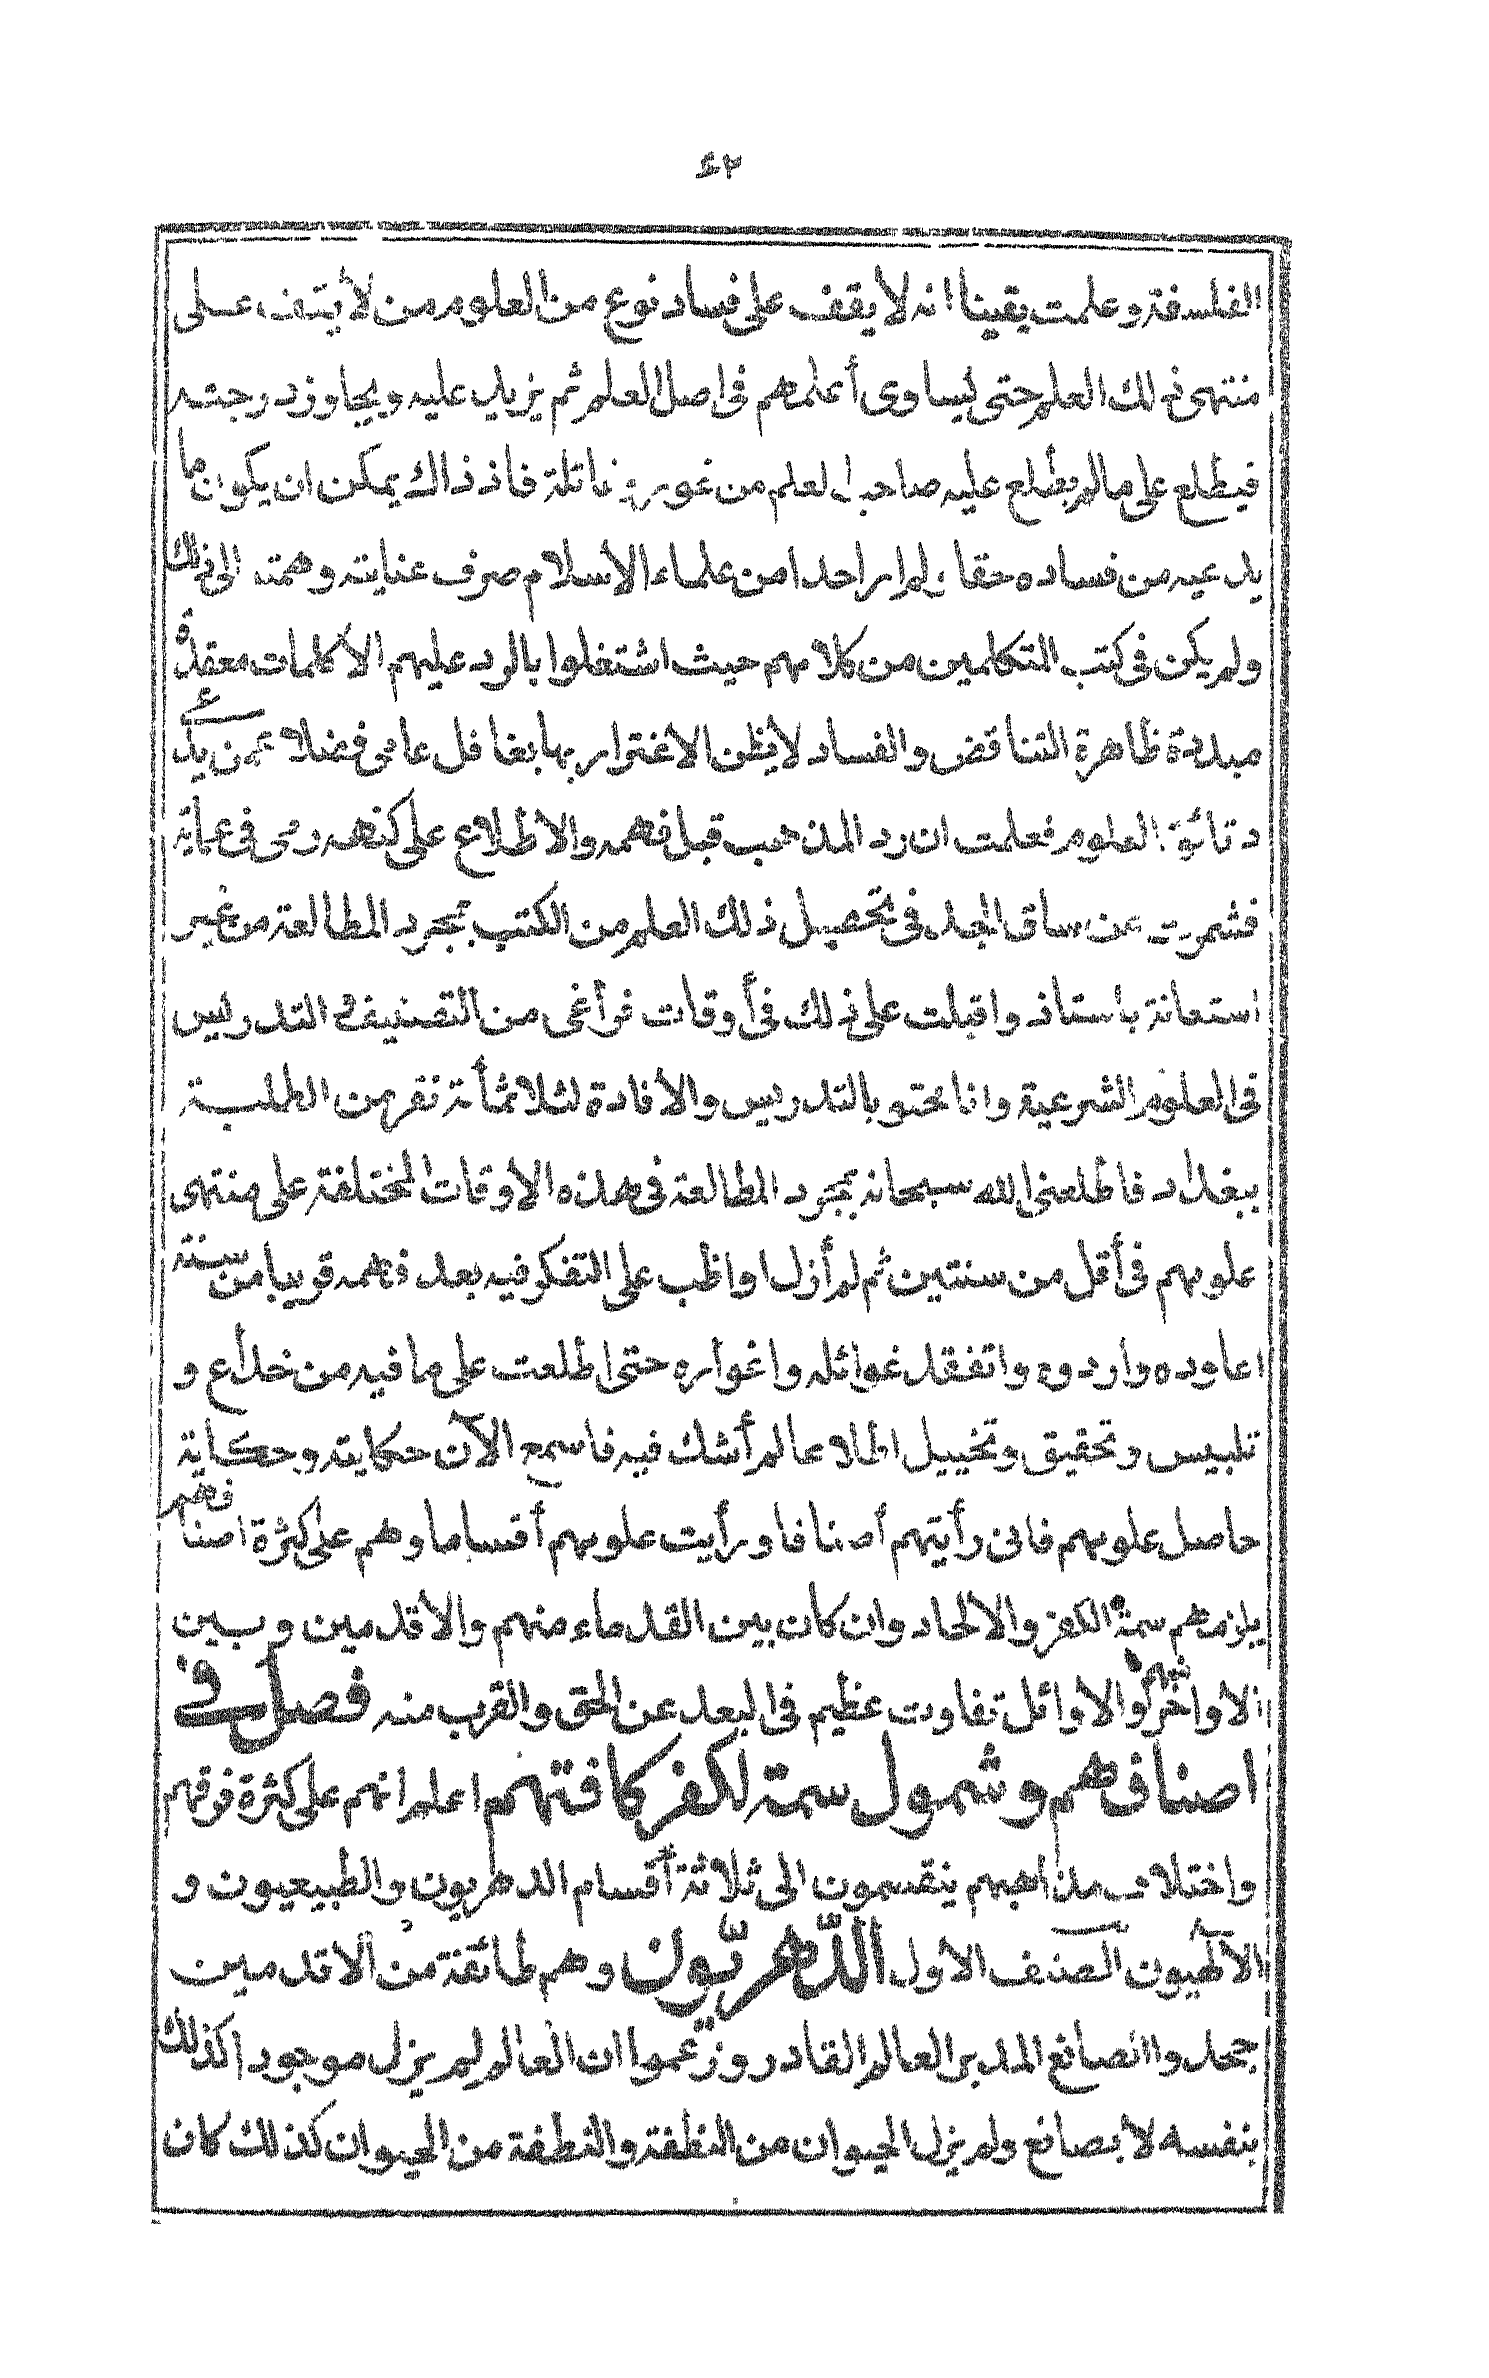 ٤٢
الفلسفة وعلمت يقينا انه لا يقف على فساد نوع من العلوم من لا يقف على
منتهى ذلك العلم حتى يساوى أعلمهم فى اصل العلم ثم يزيد عليه ويجاوز درجته
فيطلع على مالم يطلع عليه صاحب العلم من غور وغائلة فاذ ذاك يمكن ان يكون ما
يدعيه من فساده حقا ولم ار احدا من علماء الاسلام صرف عنايته وهمته الى ذلك
ولم يكن فى كتب المتكلمين من كلامهم حيث اشتغلوا بالرد عليهم الا كلمات معقدة
مبددة ظاهرة التناقض والفساد لا يظن الاغترار بها بغافل عامى فضلا عمن يدعى
دقائق العلوم فعلمت ان رد المذهب قبل فهمه والاطلاع على كنهه رمى فى عماية
فشمرت عن ساق الجد فى تحصيل ذلك العلم من الكتب بمجرد المطالعة من غير
استعانة باستاذ واقبلت على ذلك فى أوقات فراغى من التصنيف و التدريس
فى العلوم الشرعية وانا محتو بالتدريس والافادة لثلاثمأئة نفر من الطلبة
ببغداد فاطلعنى الله سبحانه بمجرد المطالعة فى هذه الاوقات المختلفة على منتهى
علومهم فى أقل من سنتين ثم لم أزل اواظب على التفكر فيه بعد فهمه قريبا من سنة
اعاوده واردده واتفقد غوائله واغواره حتى اطلعت على ما فيه من خداع و
تلبيس وتحقيق وتخييل اطلاعا لم أشك فيه فاسمع الآن حكايته وحكاية
حاصل علومهم فانى رأيتهم أصنافا ورأيت علومهم أقساما وهم على كثرة اصنافهم
يلزمهم سمة الكفر والالحاد وان كان بين القدماء منهم والاقدمين وبين
الاواخر منهم والاوائل تفاوت عظيم فى البعد عن الحق والقرب منه فصل فى
اصنافهم وشمول سمة لكفر كافتهم اعلم انهم على كثرة فرقهم
واختلاف مذاهبهم ينقسمون الى ثلاثة أقسام الدهريون والطبيعيون و
الآلهيون الصنف الاول الدّهريّون وهم طائفة من الاقدمين
جحدوا الصانع المدبر العالم القادر وزعموا ان العالم لم يزل موجودا كذلك
بنفسه لا بصانع ولم يزل الحيوان من النطفة والنطفة من الحيوان كذلك كان